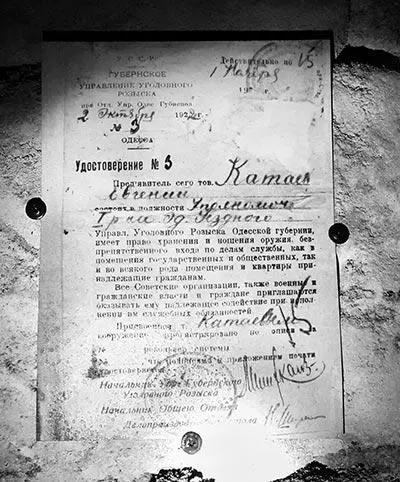 У.С.С.Р.
ГУБЕРНСКОЕ
УПРАВЛЕНИЕ УГОЛОВНОГО
РОЗЫСКА
при Отд. Упр. Одес Губиспол.
2 Октября 192
№ 3
ОДЕССА
Действительно по
1 Ноября
192
Удостоверение № 3
Пред'явитель сего тов. Катаев
Евгений
состоит в должности
Уездного
Управл. Уголовного Розыска Одесской губернии,
имеет право хранения и ношения оружия, бес-
препятственного входа по делам службы, как в
помещения государственные и общественные, так
и во всякого рода помещения и квартиры при-
надлежащие гражданам.
Все Советские организации, также военные и
гражданские власти и граждане приглашаются
оказывать ему надлежащее содействие при испол-
нении им служебных обязанностей.
Присвоенное т. Катаеву
вооружение, зарегистрировано по описи
револьвер системы
что подписями и приложением печати
удостоверяется
Начальник Губернского
Уголовного Розыска
Начальник Общего Отдела
Делопроизвод стола